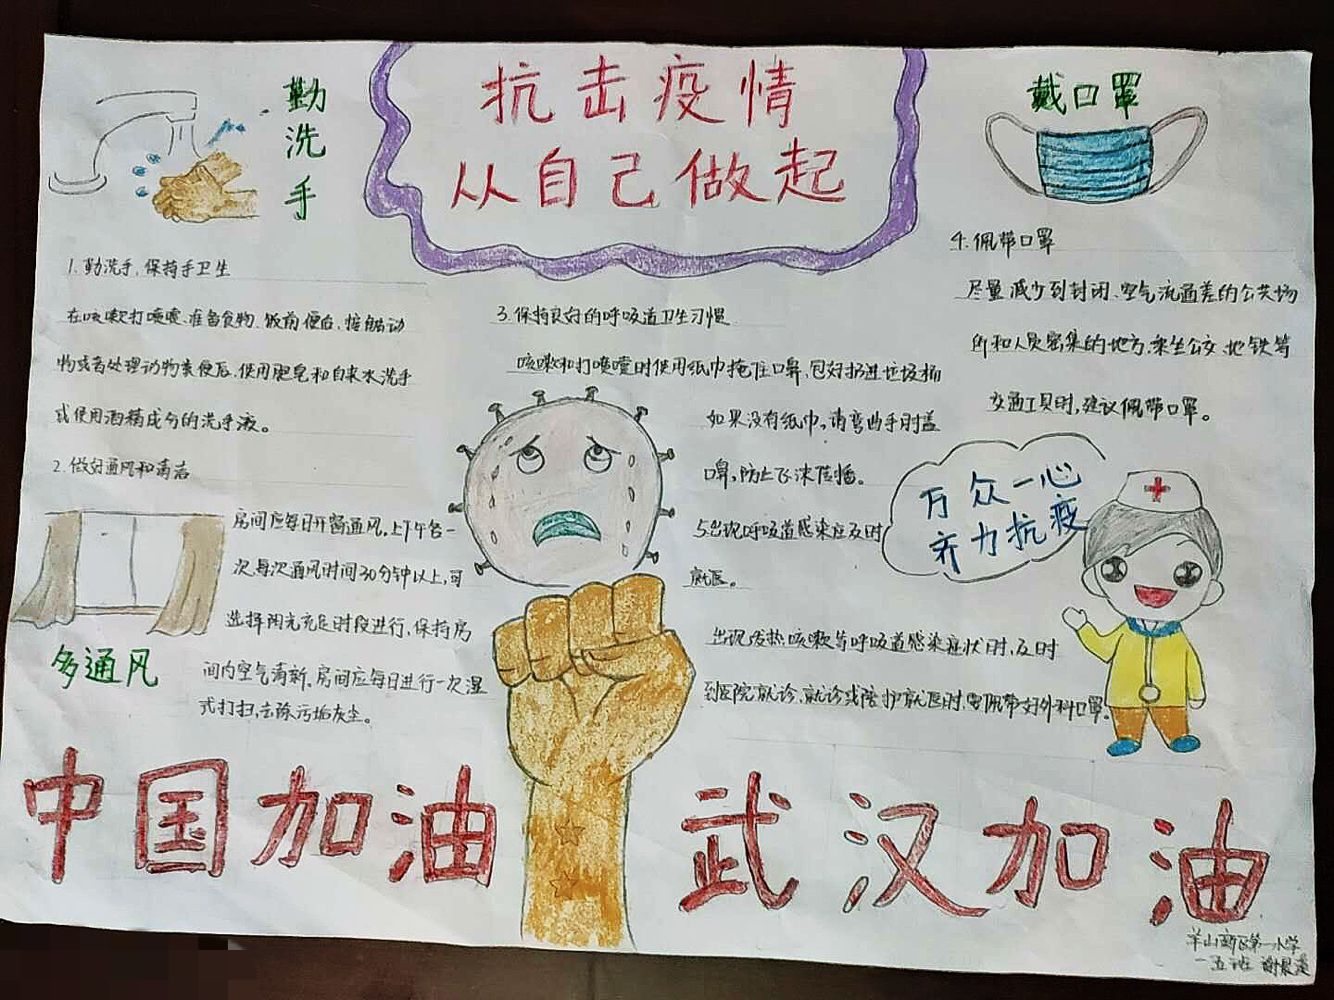 抗击疫情
从自己做起
勤洗手
戴口罩
1. 勤洗手,保持手卫生
在咳嗽打喷嚏、准备食物、饭前便后、接触动
物或者处理动物粪便后,使用肥皂和自来水洗手
或使用酒精成分的洗手液。
2. 做好通风和清洁
房间应每日开窗通风,上下午各一
次,每次通风时间30分钟以上,可
选择阳光充足时段进行,保持房
间内空气清新。房间应每日进行一次湿
式打扫,去除污垢灰尘。
多通风
3. 保持良好的呼吸道卫生习惯
咳嗽和打喷嚏时使用纸巾掩住口鼻,包好扔进垃圾桶
如果没有纸巾,请弯曲手肘盖
口鼻,防止飞沫传播。
5.出现呼吸道感染应及时
就医。
出现发热咳嗽等呼吸道感染症状时,及时
到医院就诊、就诊或陪护就医时,要佩带好外科口罩。
4. 佩带口罩
尽量减少到封闭、空气流通差的公共场
所和人员密集的地方,乘坐公交、地铁等
交通工具时,建议佩带口罩。
万众一心
齐力抗疫
中国加油
武汉加油
羊山新区第一小学
一五班